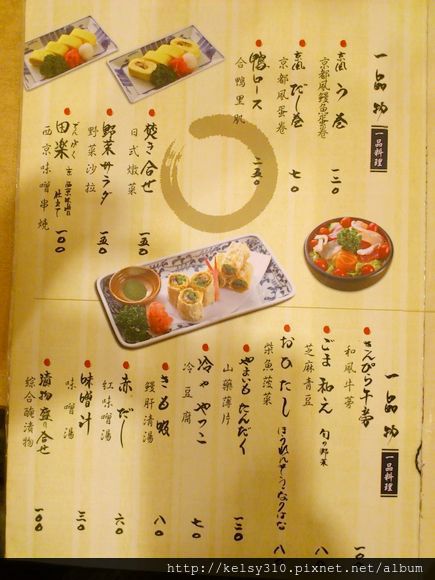 一品物
一品料理
京風 う巻
京都風鰻魚蛋卷
一二〇
京風 だし巻
京都風蛋卷
七〇
鴨ロース
合鴨里肌
二五〇
焚き合せ
日式燉菜
一五〇
野菜サラダ
野菜沙拉
一五〇
でんがく
田楽
西京味噌串燒
一〇〇
一品物
一品料理
きんぴら牛蒡
和風牛蒡
ごま和え 旬の野菜
芝麻青豆
八
おひたし
柴魚菠菜
八
やまいもたんざく
山藥薄片
一二〇
冷ややっこ
冷豆腐
七〇
きも吸
鰻肝清湯
八〇
赤だし
紅味噌湯
六〇
味噌汁
味噌湯
三〇
漬物盛り合せ
綜合醃漬物
一〇〇
http://kelsy310.pixnet.net/album